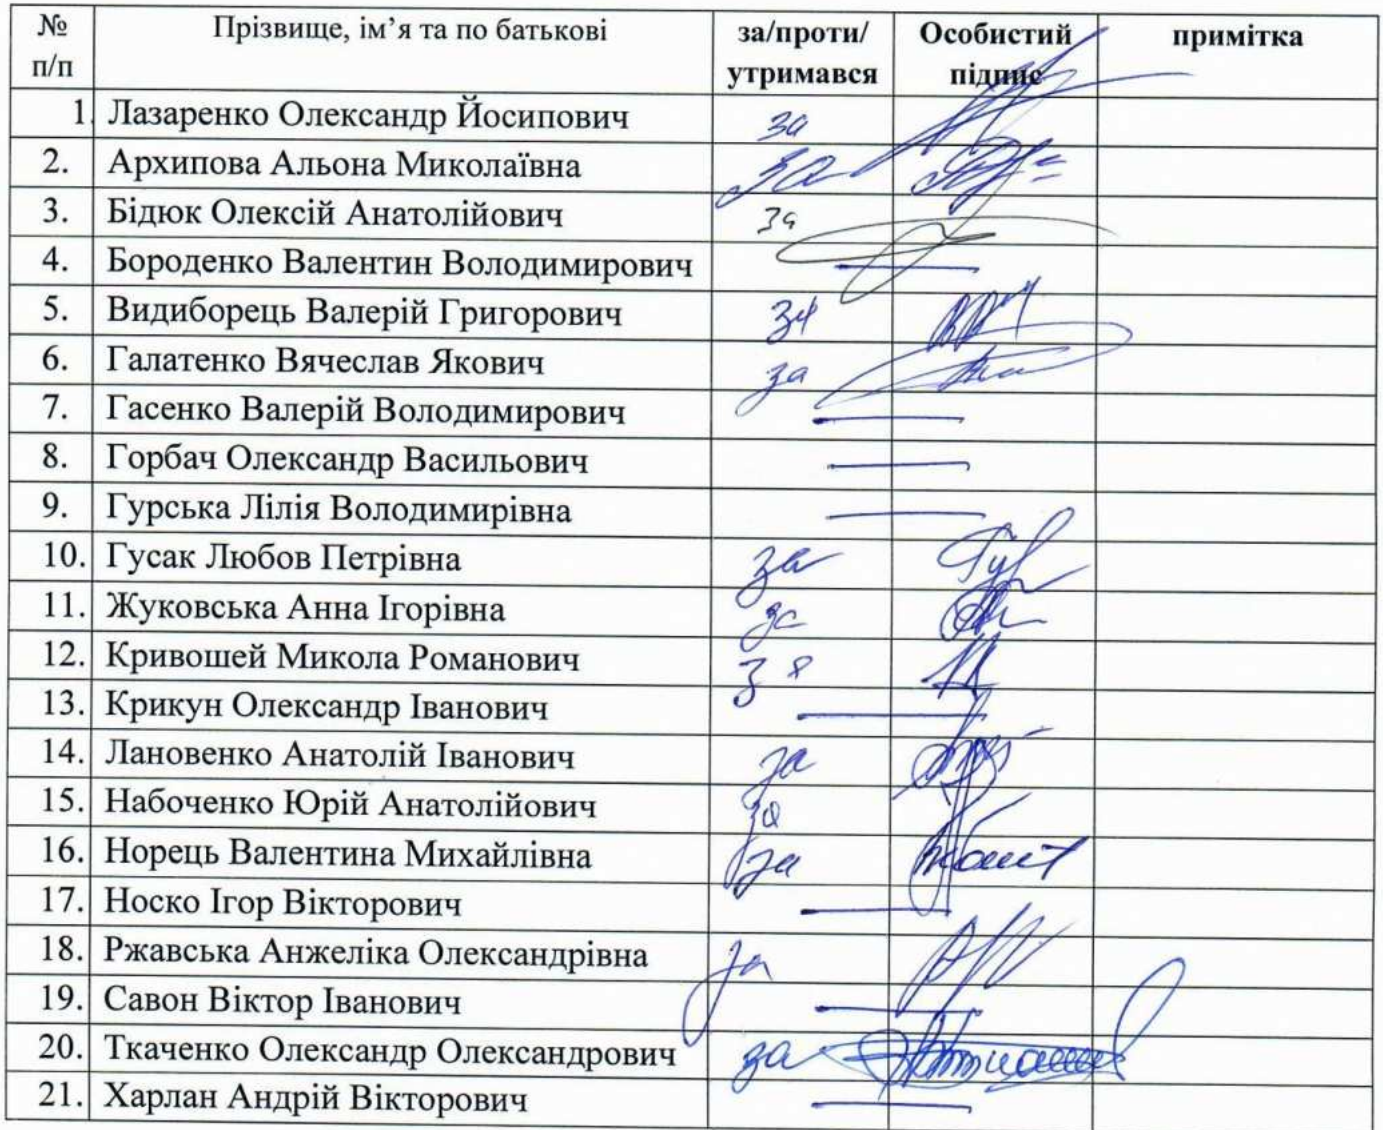 № п/п Прізвище, ім’я та по батькові за/проти/утримався Особистий підпис примітка
1. Лазаренко Олександр Йосипович за
2. Архипова Альона Миколаївна за
3. Бідюк Олексій Анатолійович за
4. Бороденко Валентин Володимирович —
5. Видиборець Валерій Григорович за
6. Галатенко Вячеслав Якович за
7. Гасенко Валерій Володимирович —
8. Горбач Олександр Васильович —
9. Гурська Лілія Володимирівна —
10. Гусак Любов Петрівна за
11. Жуковська Анна Ігорівна за
12. Кривошей Микола Романович за
13. Крикун Олександр Іванович —
14. Лановенко Анатолій Іванович за
15. Набоченко Юрій Анатолійович за
16. Норець Валентина Михайлівна за
17. Носко Ігор Вікторович —
18. Ржавська Анжеліка Олександрівна за
19. Савон Віктор Іванович —
20. Ткаченко Олександр Олександрович за
21. Харлан Андрій Вікторович —